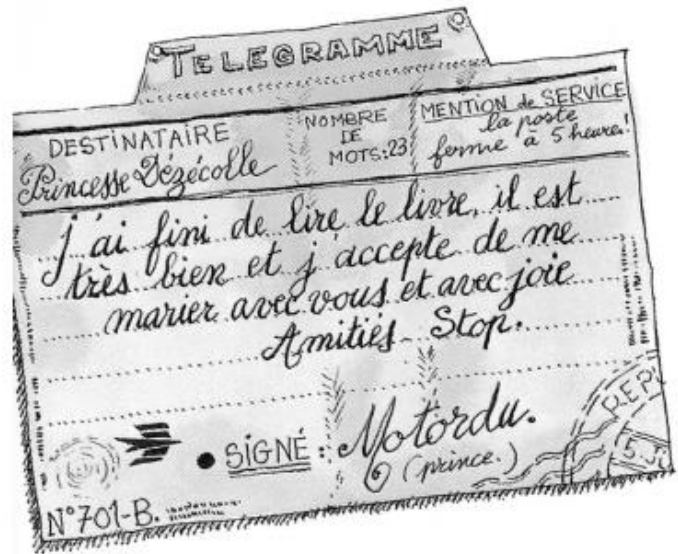 TELEGRAMME
DESTINATAIRE
Princesse Dézécolle
NOMBRE
DE
MOTS:23
MENTION de SERVICE
la poste
ferme à 5 heures!
j'ai fini de lire le livre, il est
très bien et j'accepte de me
marier avec vous et avec joie
Amitiés Stop.
• SIGNÉ : Motordu.
(prince.)
N°701-B.
REPU
5.JU